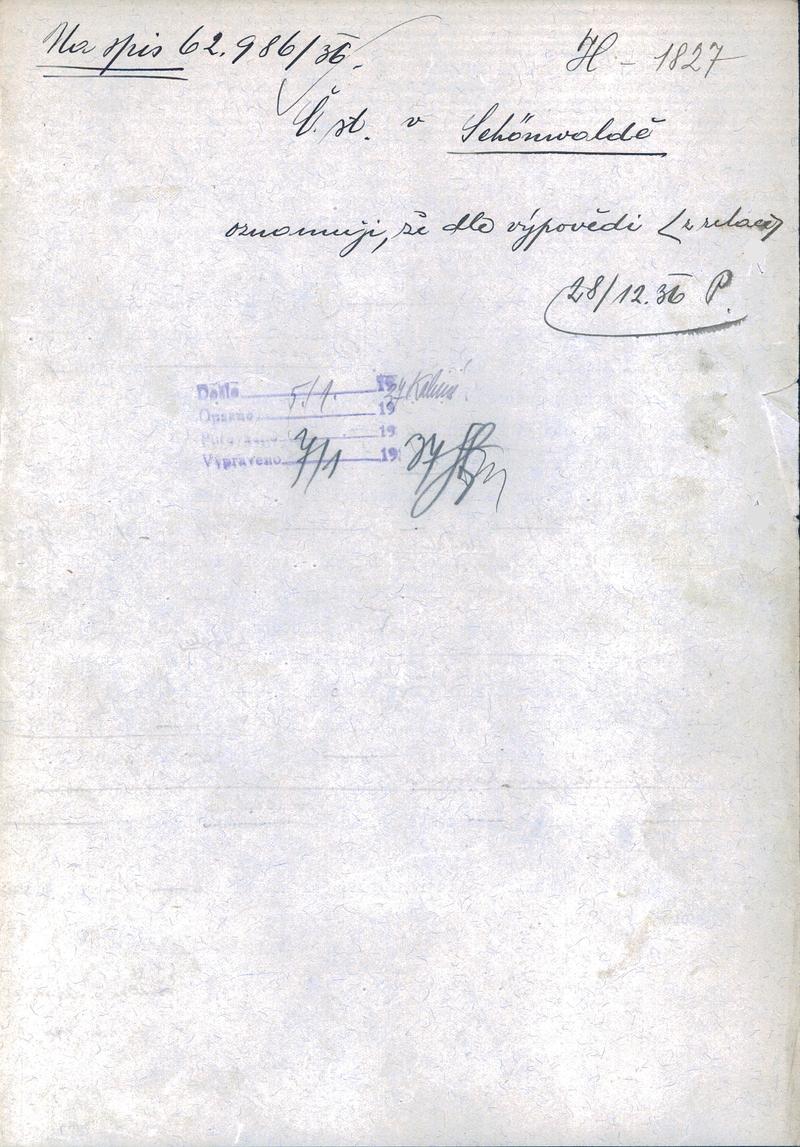 Na spis 62.986/36.
H - 1827
Č. st. v Schönwaldě
oznamuji, že dle výpovědi (z relace)
28/12.36 P.
Došlo 5/1. 1937
Opsáno 19
19
Vypraveno 7/1 1937